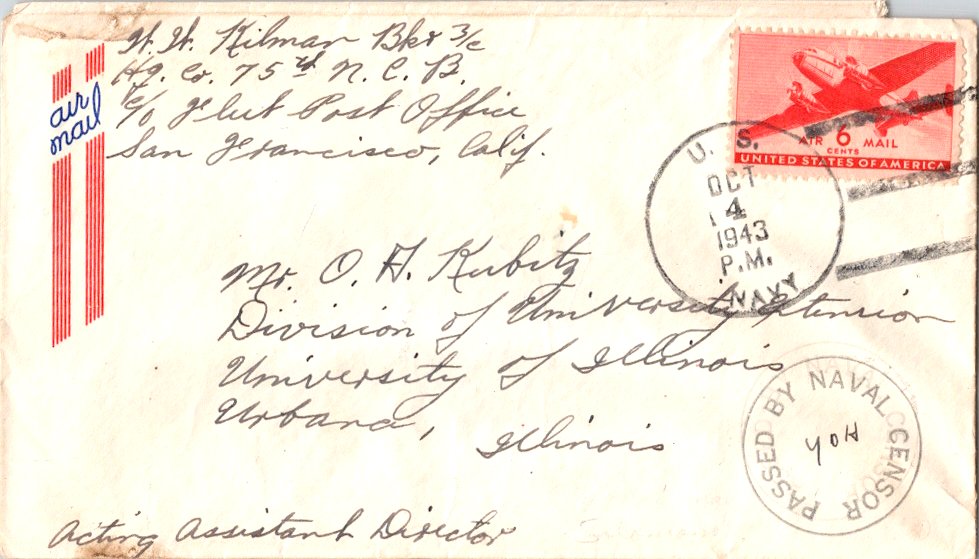 W. W. Kilman Bkr 3/c
Hq. Co. 75th N. C. B.
c/o Fleet Post Office
San Francisco, Calif.
air
mail
AIR 6 MAIL
CENTS
UNITED STATES OF AMERICA
U. S.
OCT
4
1943
P.M.
NAVY
Mr. O. H. Kubitz
Division of University Extension
University of Illinois
Urbana, Illinois
PASSED BY NAVAL CENSOR
Acting Assistant Director